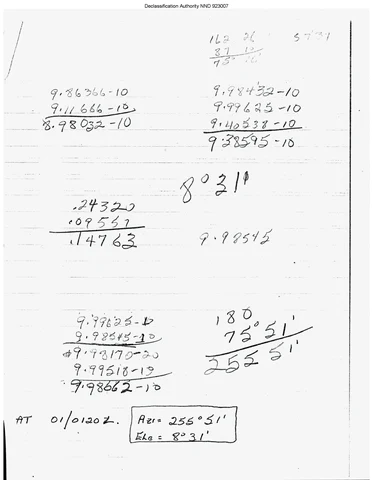 Declassification Authority NND 923007
162 26
9.86366-10
9.11666-10
8.98032-10
9.98432-10
9.99625-10
9.40538-10
9.38595-10
8° 31'
.24320
.09557
.14763
9.98545
9.99625-10
9.98545-10
9.98170-20
9.99518-10
9.98662-10
180
75° 51'
255 51'
AT 01/0120Z. Az= 255° 51'
Ele= 8° 31'